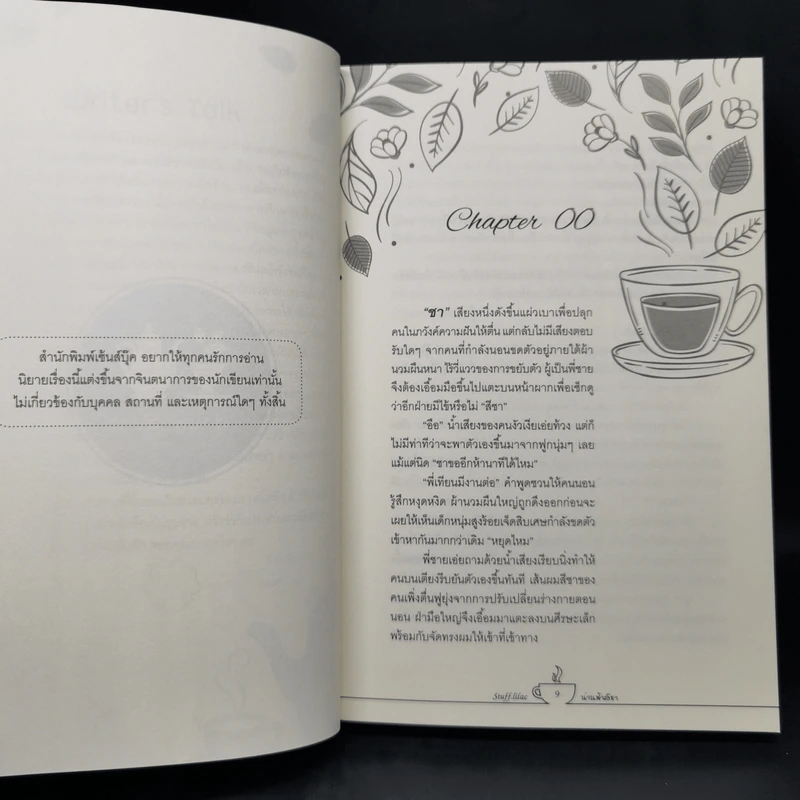 สำนักพิมพ์เซ้นส์บุ๊ค อยากให้ทุกคนรักการอ่าน
นิยายเรื่องนี้แต่งขึ้นจากจินตนาการของนักเขียนเท่านั้น
ไม่เกี่ยวข้องกับบุคคล สถานที่ และเหตุการณ์ใดๆ ทั้งสิ้น
Chapter 00
“ชา” เสียงหนึ่งดังขึ้นแผ่วเบาเพื่อปลุก
คนในภวังค์ความฝันให้ตื่น แต่กลับไม่มีเสียงตอบ
รับใดๆ จากคนที่กำลังนอนขดตัวอยู่ภายใต้ผ้า
นวมผืนหนา ไร้วี่แววของการขยับตัว ผู้เป็นพี่ชาย
จึงต้องเอื้อมมือขึ้นไปแตะบนหน้าผากเพื่อเช็กดู
ว่าอีกฝ่ายมีไข้หรือไม่ “สีชา”
“อือ” น้ำเสียงของคนงัวเงียเอ่ยท้วง แต่ก็
ไม่มีท่าทีว่าจะพาตัวเองขึ้นมาจากฟูกนุ่มๆ เลย
แม้แต่นิด “ชาขออีกห้านาทีได้ไหม”
“พี่เทียนมีงานต่อ” คำพูดชวนให้คนนอน
รู้สึกหงุดหงิด ผ้านวมผืนใหญ่ถูกดึงออกก่อนจะ
เผยให้เห็นเด็กหนุ่มสูงร้อยเจ็ดสิบเศษกำลังขดตัว
เข้าหากันมากกว่าเดิม “หยุดไหม”
พี่ชายเอ่ยถามด้วยน้ำเสียงเรียบนิ่งทำให้
คนบนเตียงรีบยันตัวเองขึ้นทันที เส้นผมสีชาของ
คนเพิ่งตื่นฟูยุ่งจากการปรับเปลี่ยนร่างกายตอน
นอน ฝ่ามือใหญ่จึงเอื้อมมาแตะลงบนศีรษะเล็ก
พร้อมกับจัดทรงผมให้เข้าที่เข้าทาง
Stuff.lilac 9 น่านพันธีชา